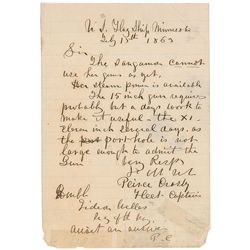 U. S. Flag Ship Minnesota
July 15th 1863
Sir
The Sangamon cannot
use her guns as yet.
Her steam power is available
The 15 inch gun requires
probably but a days work to
make it useful - the XI-
eleven inch several days, as
the port hole is not
large enough to admit the
Gun
Very Respy
Yr Obt
Peirce Crosby
Fleet Captain
Honble
Gideon Welles
Secy of the Navy
P.C